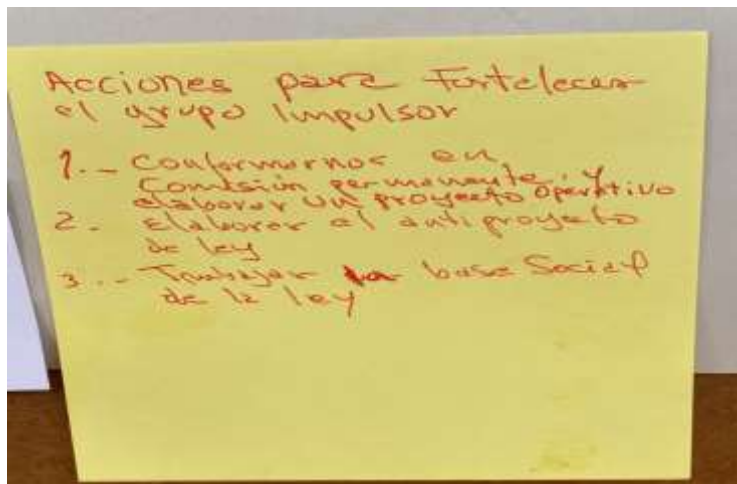 Acciones para Fortelecer
el grupo Impulsor
1.- Conformarnos en
Comisión permanente. y
elaborar un proyecto operativo
2. Elaborar el antiproyecto
de ley
3.- Trabajar la base Social
de la ley